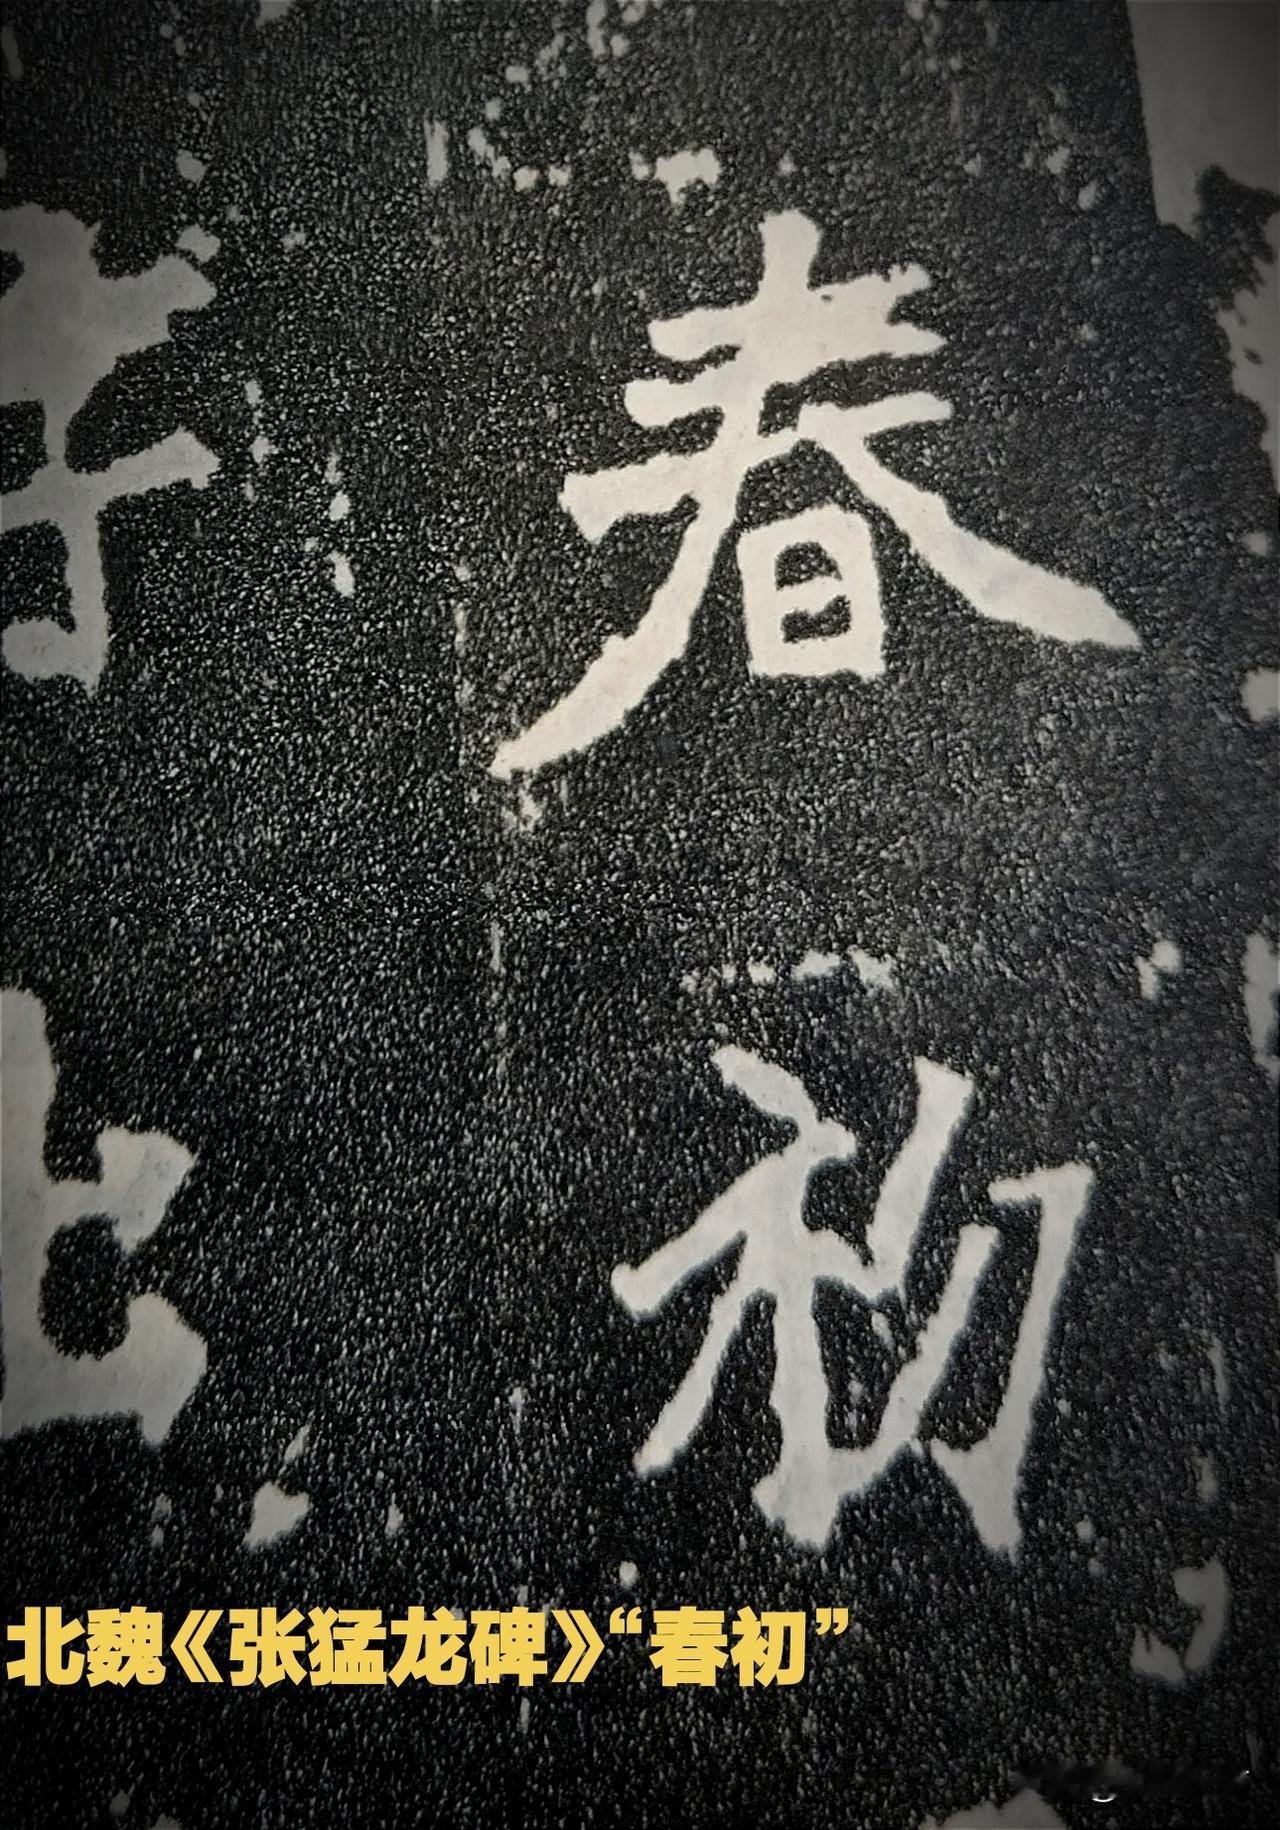 春
初
北魏《张猛龙碑》“春初”